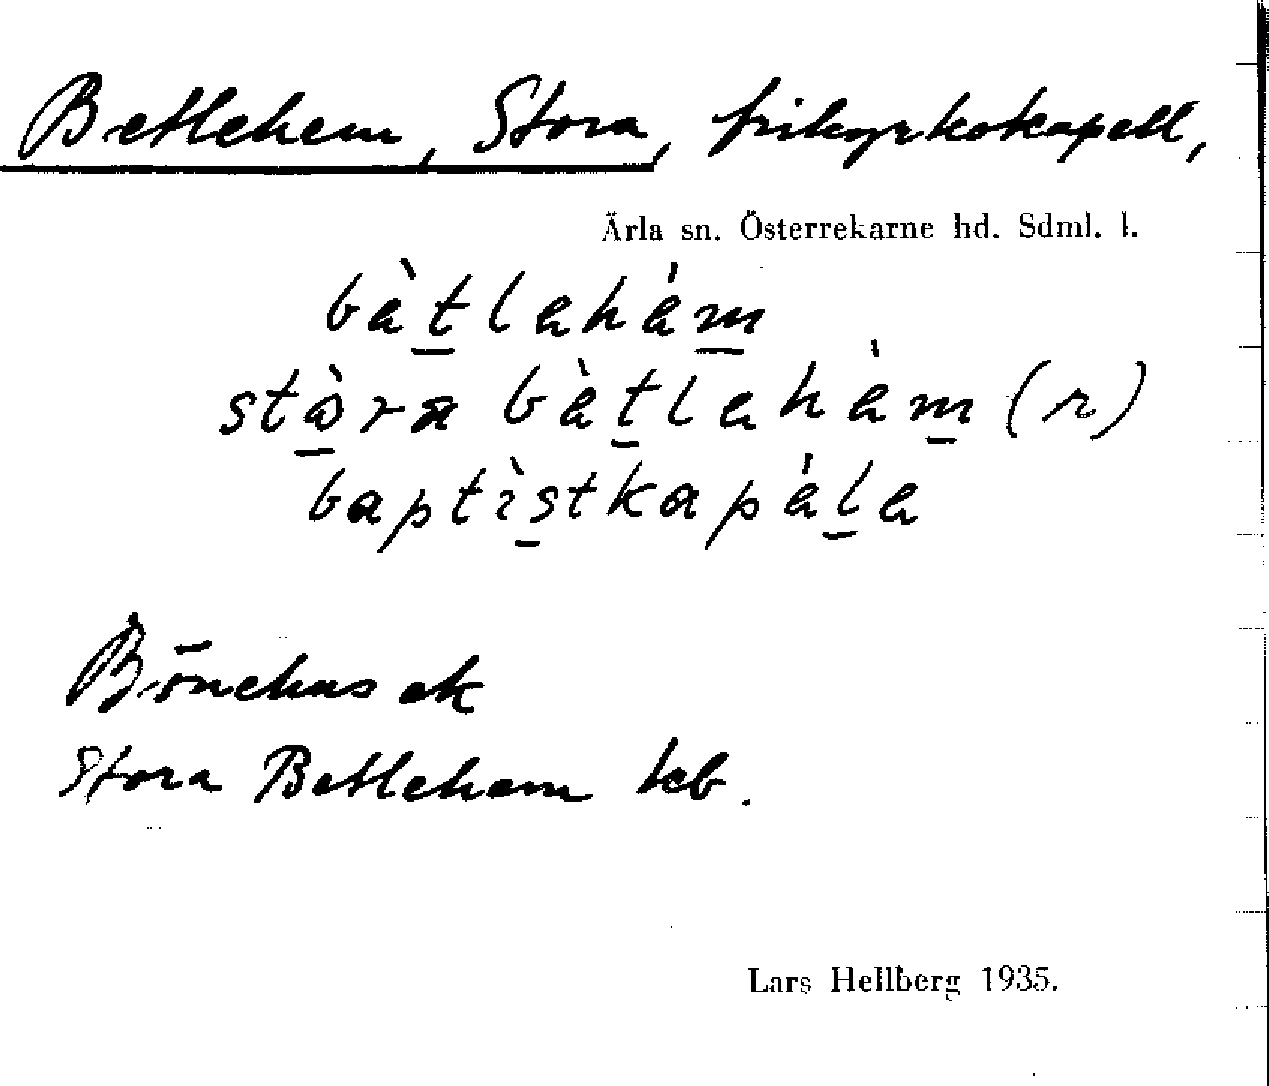 Betlehem, Stora, frikyrkokapell,
Ärla sn. Österrekarne hd. Sdml. l.
bètlahém
stòra bètlahém (r)
baptìstkapéla
Bönehus ek
Stora Betlehem kb.
Lars Hellberg 1935.